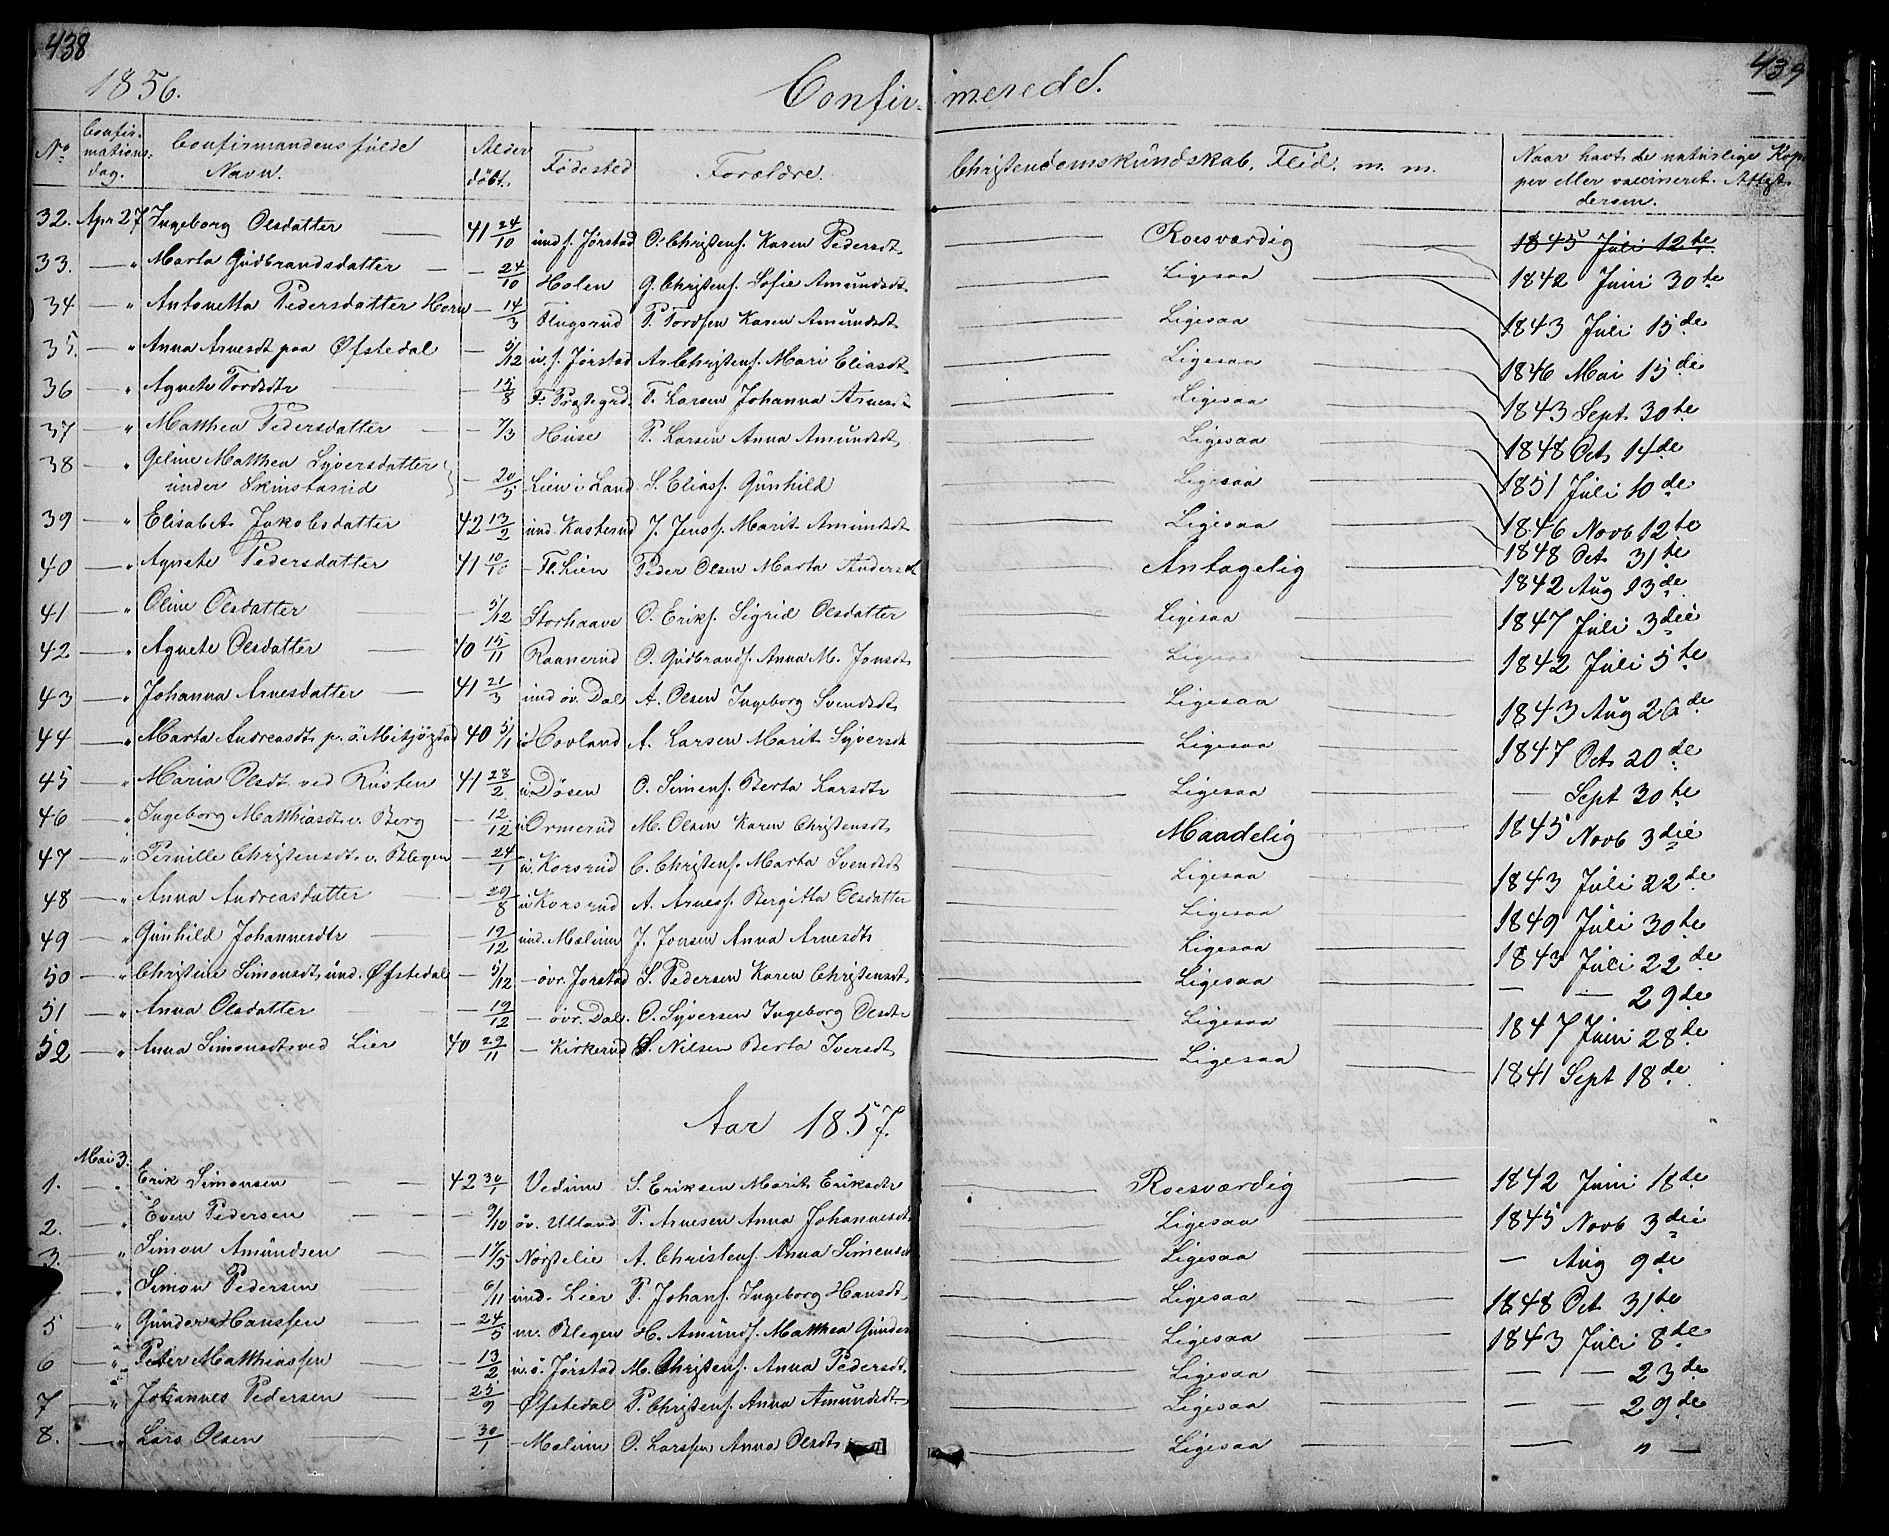 438
439
1856.
Confirmerede.
No
Confirmations dag.
Confirmandens fulde Navn.
Alder døbt.
Fødested
Forældre.
Christendomskundskab, Flid. m. m.
Naar havt de naturlige Kopper eller vaccineret. Attest derom.
32. Apr 27 Ingeborg Olsdatter — 41 24/10 und s. Jørstad O. Christens. Karen Pedersdt. — Roesværdig — 1845 Juli 12te
33. — " Marta Gudbrandsdatter — — 24/10 Holen G. Christens. Sofie Amundsdt. — Ligesaa — 1842 Juni 30te
34 — " Antonetta Pedersdatter Horn — 14/3 Flugsrud P. Tordsen Karen Amundsdt — Ligesaa 1843 Juli 15de
35. — " Anna Arnesdt paa Øfstedal — 5/12 u. s. Jørstad Ar Christens. Mari Eliasdt — Ligesaa — 1846 Mai 15de
36 — " Agnete Tordsdtr — 15/8 T. Larsen Johanna Arnesdt — Ligesaa — 1843 Sept. 30te
37 — " Matthea Pedersdatter — — 7/3 Huse P. Larsen Anna Amundsdt. — Ligesaa — 1848 Oct 14de
38 — " Geline Matthea Syversdatter
under — 20/5 Lien i Land S. Eliass. Gunhild — Ligesaa — 1851 Juli 10de
39 — " Elisabet Jakobsdatter 42 13/2 und. Kasterud J. Jenss. Marit Amundsdt — Ligesaa — 1846 Novb 12te
1848 Oct 31te
40 — " Agnete Pedersdatter 41 10/10 — Fl. Lien Peder Olsen Marta Andersdt — Antagelig — 1842 Aug 13de
41 — " Oline Olsdatter — — 5/12 Storhaave O. Eriks. Sigrid Olsdatter — Ligesaa — 1847 Juli 3die
42 — " Agnete Olsdatter — 40 15/11 Raanerud O. Gudbrands. Anna M. Jonsdt — Ligesaa — 1842 Juli 5te
43 — " Johanna Arnesdatter — 41 21/3 und øv. Dal A. Olsen Ingeborg Svendsdt — Ligesaa — 1843 Aug 26de
44 — " Marta Andreasdt p. ö. Mitjørstad 40 5/1 Hovland A. Larsen Marit Syversdt — Ligesaa — 1847 Oct 20de
45 — " Maria Olsdt. ved Rusten 41 28/2 u Døsen O. Simens. Berta Larsdtr — Ligesaa — — Sept 30te
46 — " Ingeborg Matthiasdt v. Berg — 12/12 u Ormerud M. Olsen Karen Christensdt — Maadelig — 1845 Novb 3die
47 — " Pernille Christensdt. v. Blegen — 24/1 u. Korsrud C. Christens. Marta Svendsdt — Ligesaa — 1843 Juli 22de
48 — " Anna Andreasdatter — — 29/8 u Korsrud A. Arness. Bergitta Olsdatter — Ligesaa — 1849 Juli 30te
49 — " Gunhild Johannesdtr — — 19/12 und. Melinn J. Jonsen Anna Arnesdt — Ligesaa — 1843 Juli 22de
50 — " Christine Simonsdt, und. Øfstedal — 5/12 — övr. Jorstad S. Pedersen Karen Christensdt — Ligesaa — — — 29de
51 — " Anna Olsdatter — — 19/12 — övr. Dal. O. Syversen Ingeborg Olsdt — Ligesaa — 1847 Juni 28de
52 — " Anna Simonsdt ved Lier 40 29/11 — Kirkerud S. Nilsen Berta Iversdt — Ligesaa — 1841 Sept 18de
Aar 1857.
Mai 3.
1. — " Erik Simonsen — — 42 30/1 Vedum S. Eriksen Marit Eriksdtr — Roesværdig — 1842 Juni 18de
2. — " Even Pedersen — — — 9/10 öv. Ulland P. Arnesen Anna Johannesdt — Ligesaa — 1845 Novb 3die
3. — " Simon Amundsen — — 17/5 Norstelie A. Christens. Anna Simensdt — Ligesaa — — Aug 9de
— " Simon Pedersen — 6/11 und. Lier P. Johans. Ingeborg Hansdt — Ligesaa — 1848 Oct 31te
5 — " Gunder Hanssen — — 24/5 Blegen H. Amunds. Matthea Gunders — Ligesaa — 1843 Juli 8de
6 — " Peder Matthiassen — — 13/2 u. ö. Jørstad M. Christens. Anna Pedersdt — Ligesaa — — — 23de
7 — " Johannes Pedersen — — 25/9 — Øfstedal P. Christens. Anna Amundsdt — Ligesaa — — — 29de
8. — " Lars Olsen — — 30/1 — Melinn O. Larssen Anna Olsdt — Ligesaa — — " —